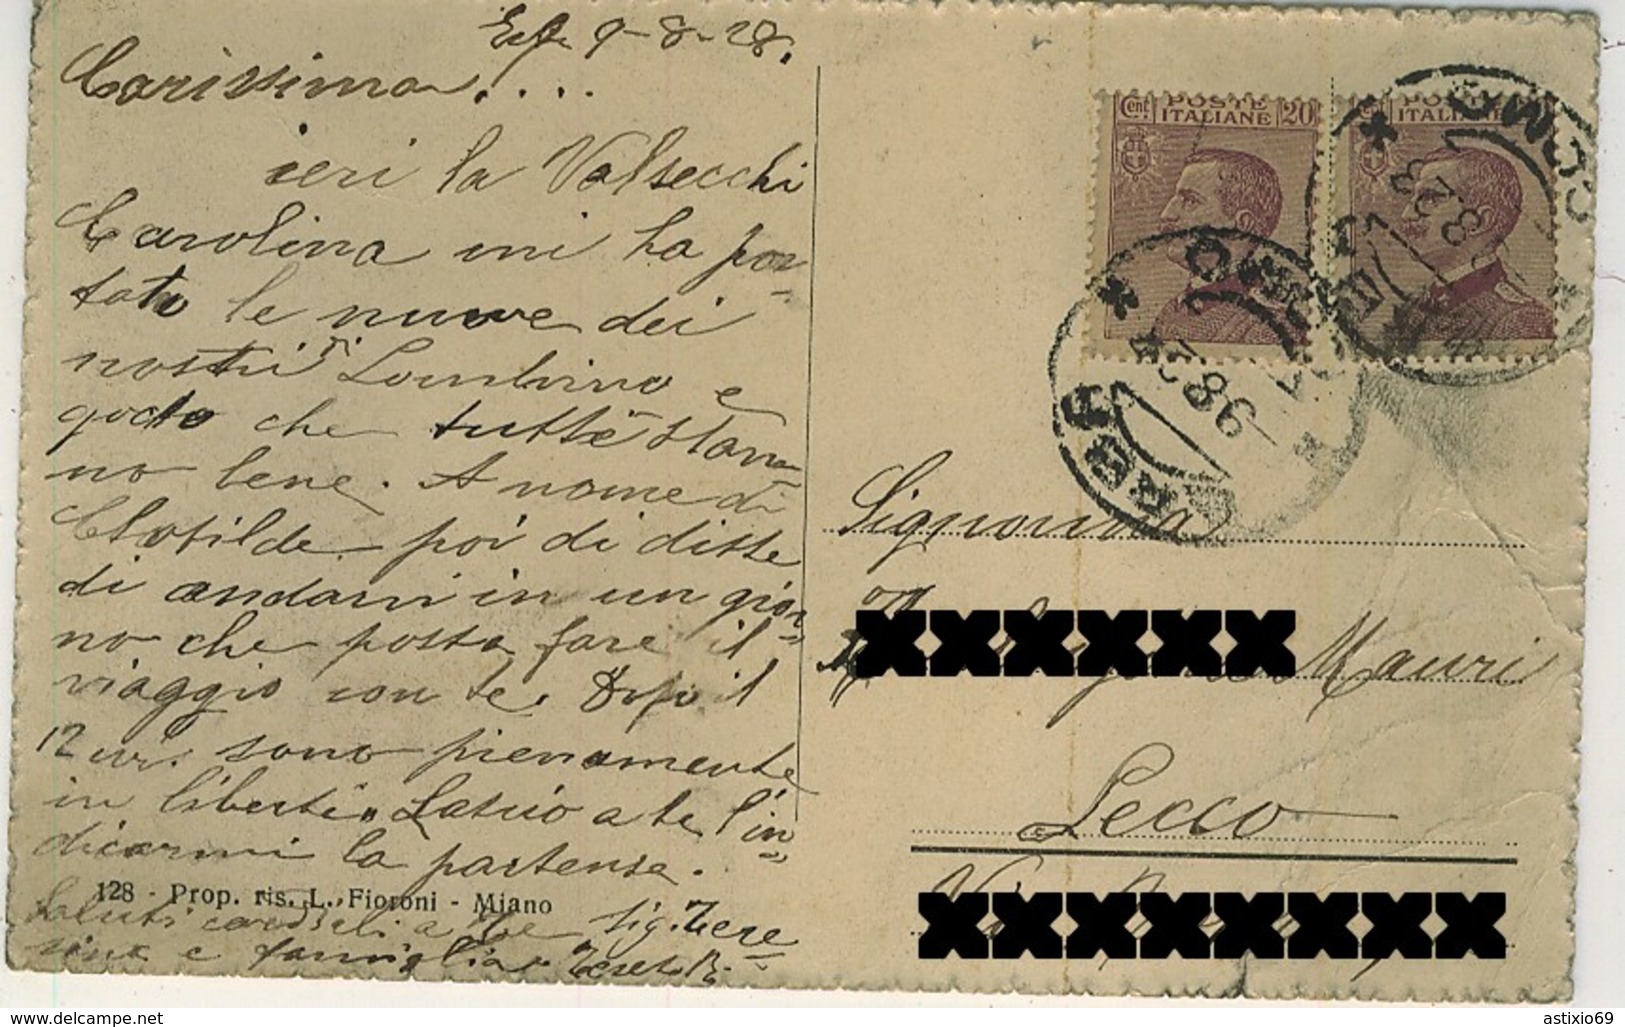 9-8-28.
Carissima....
ieri la Valsecchi
Carolina mi ha por-
tato le nuove dei
nostri Lombrino e
godo che tutte stan-
no bene. A nome di
Clotilde poi di disse
di andarvi in un gior-
no che posta fare il
viaggio con te. Dopo il
12 sono pienamente
in libertà. Lascio a te l'in-
dicarmi la partensa.
Saluti cordiali a te sig. Tere-
sina e famiglia
128 - Prop. ris. L. Fioroni - Miano
Cent. POSTE ITALIANE 20
POSTE ITALIANE
COMO
Signorina
Mauri
Lecco
www.delcampe.net
astixio69